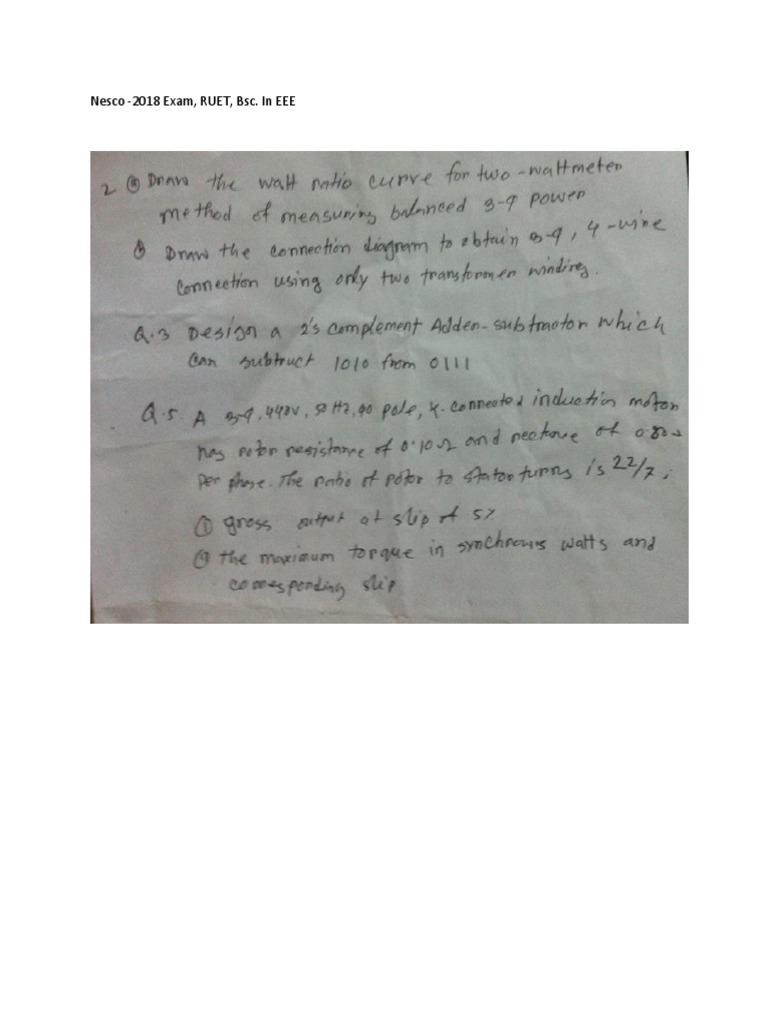 Nesco -2018 Exam, RUET, Bsc. In EEE
2 (a) Draw the watt ratio curve for two-wattmeter
method of measuring balanced 3-φ power
(b) Draw the connection diagram to obtain 3-φ, 4-wire
connection using only two transformer windings.
Q.3 Design a 2's complement Adder-subtractor which
can subtruct 1010 from 0111
Q.5 A 3-φ, 440V, 50 Hz, 40 pole, Y-connected induction motor
has rotor resistance of 0.10Ω and rectance of 0.80Ω
per phase. The ratio of rotor to stator turns is 22/7;
(i) gross output at slip of 5%
(ii) the maximum torque in synchronus watts and
corresponding slip